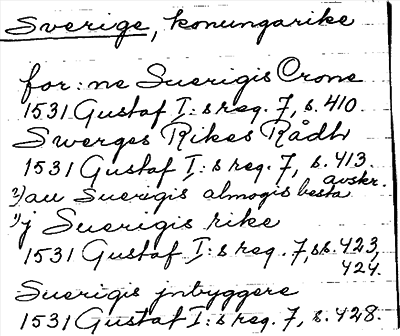 Sverige, konungarike
for: ne Suerigis Crone
1531 Gustaf I:s reg. 7, s. 410.
Swerges Rikes Rådh
1531 Gustaf I:s reg. 7, s. 413.
avskr.
2) au Suerigis almogis besta
1) j Suerigis rike
1531 Gustaf I:s reg. 7 ss. 423,
424.
Suerigis jnbyggere
1531 Gustaf I:s reg. 7, s. 428.